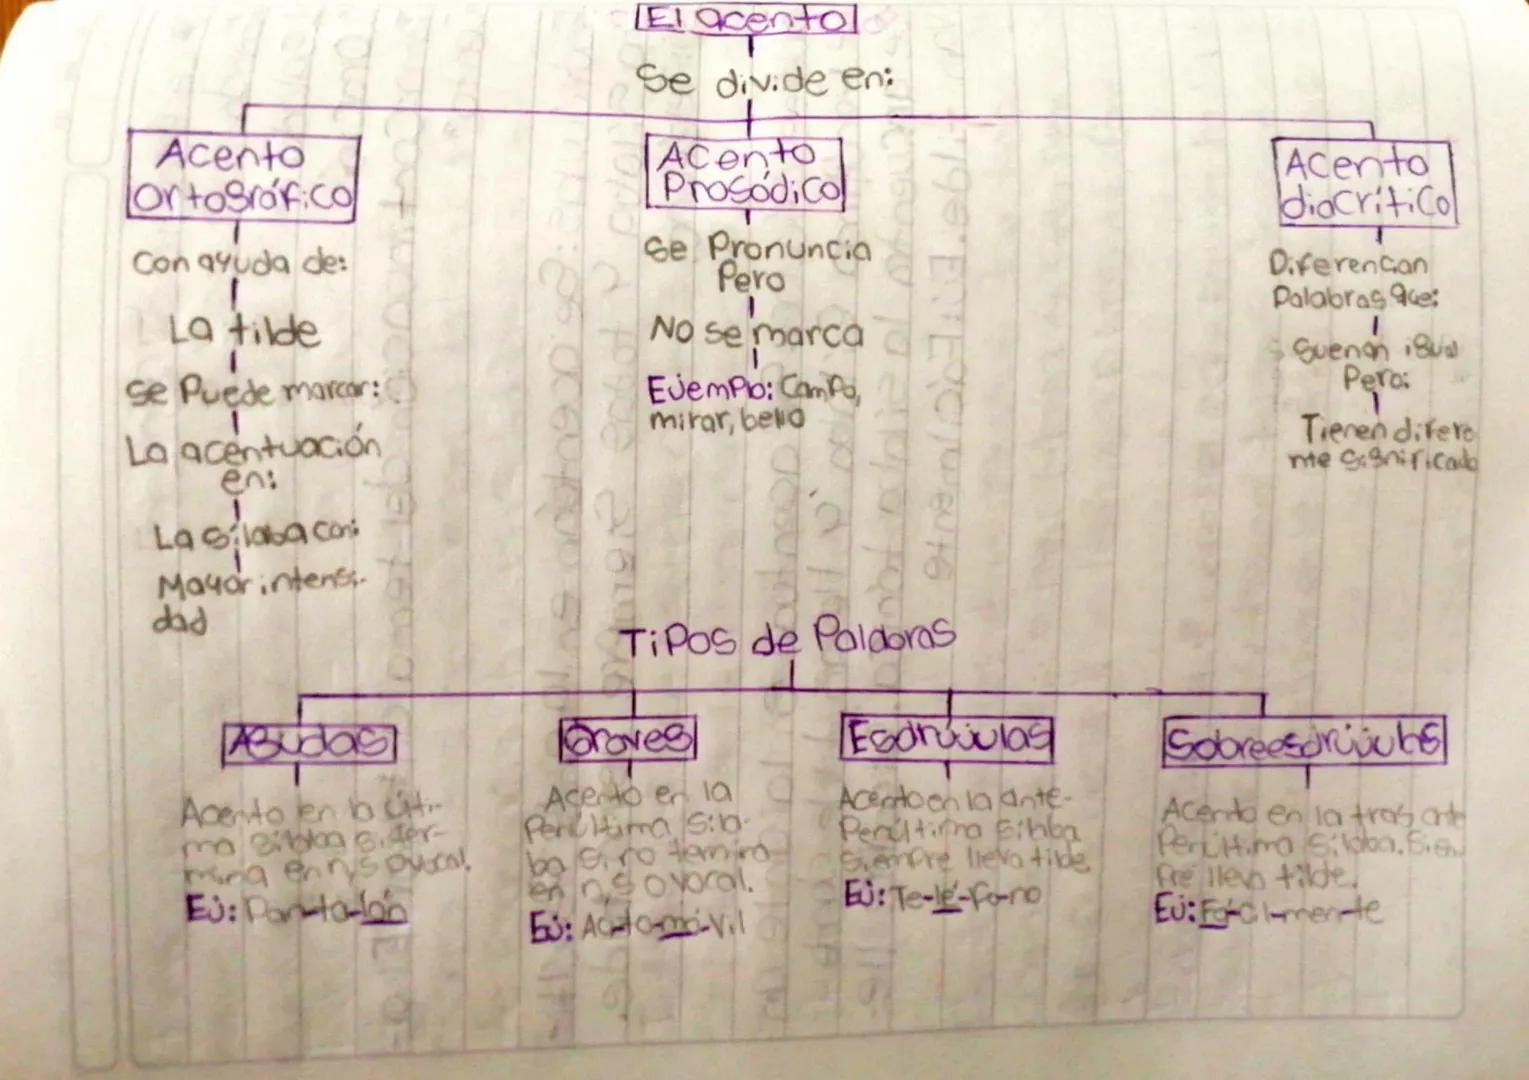 El acento
Se divide en:
Acento
Ortográfico
Con ayuda de:
La tilde
Se Puede marcar:
La acentuación
en:
La sílaba con:
Mayor intensi-
dad
Acento
Prosódico
Se Pronuncia
Pero
No se marca
Ejemplo: Campo,
mirar, bello
Acento
diacrítico
Diferencan
Palabras que:
Suenan igual
Pero:
Tienen difere
nte significado
Tipos de Palabras
Agudas
Acento en la últi-
ma sílaba si ter-
mina en n, s o vocal.
Ej: Pan-ta-lón
Graves
Acento en la
Penúltima síla-
ba si no termina
en n, s o vocal.
Ej: Auto-mó-vil
Esdrújulas
Acento en la ante-
Penúltima sílaba
siempre lleva tilde.
Ej: Te-lé-fo-no
Sobreesdrújulas
Acento en la tras ante
Penúltima sílaba. Siem
pre lleva tilde.
Ej: Fá-cil-men-te